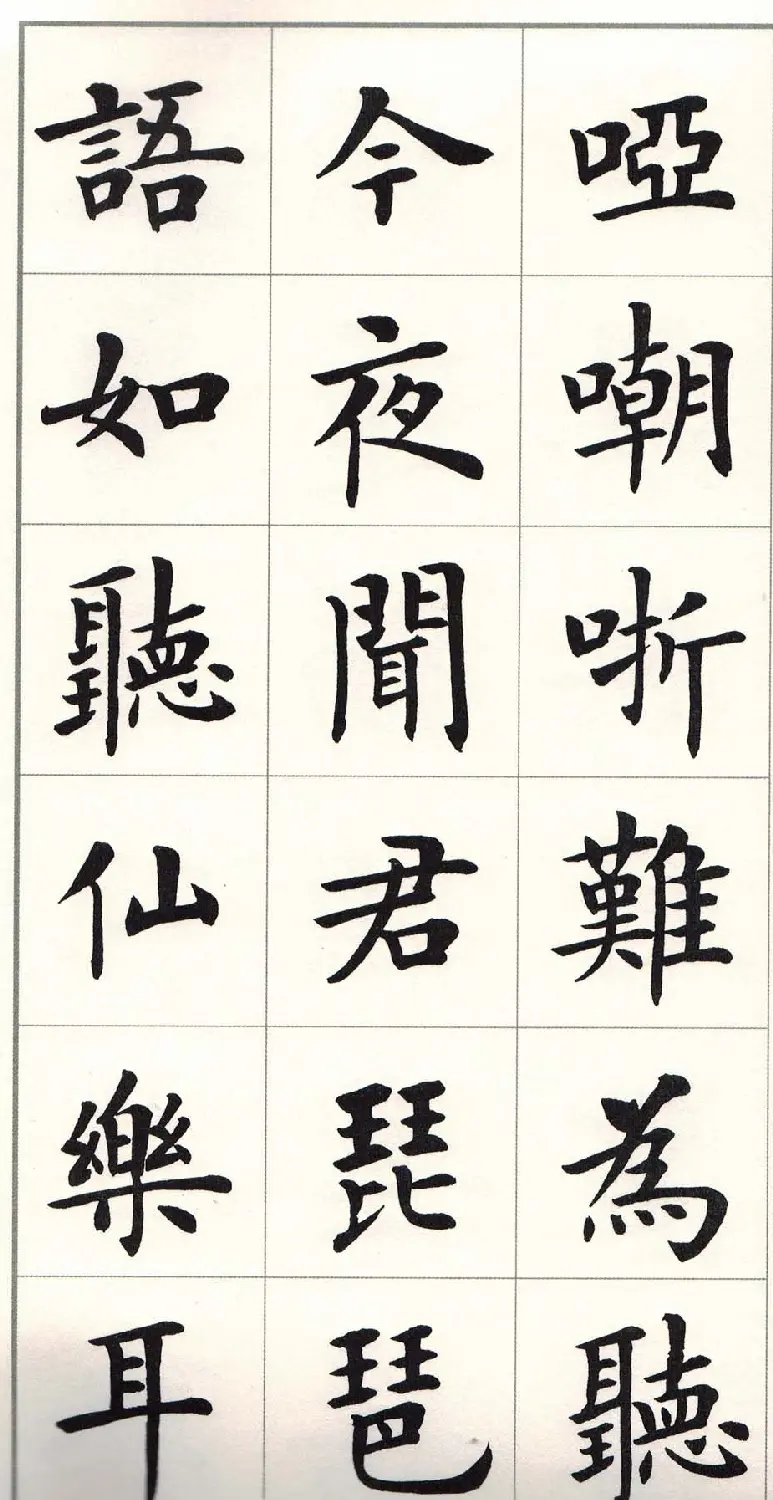 啞嘲哳難為聽
今夜聞君琵琶
語如聽仙樂耳